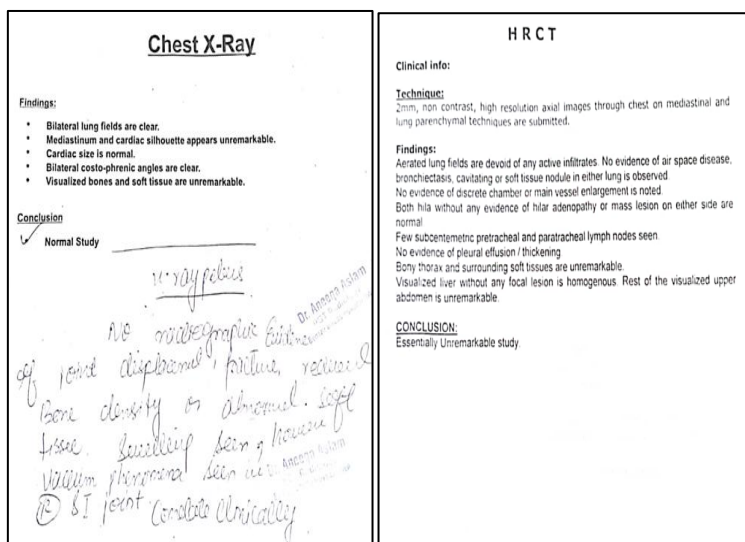 Chest X-Ray
Findings:
• Bilateral lung fields are clear.
• Mediastinum and cardiac silhouette appears unremarkable.
• Cardiac size is normal.
• Bilateral costo-phrenic angles are clear.
• Visualized bones and soft tissue are unremarkable.
Conclusion
Normal Study
x-ray pelvis
No radiographic Evidence
of joint displacement, fracture, reduced
Bone density or abnormal soft
tissue swelling seen, however
Vaccum phenomena seen in
R SI joint Correlate Clinically
Dr. Aneeqa Aslam
Dr. Aneeqa Aslam
HRCT
Clinical info:
Technique:
2mm, non contrast, high resolution axial images through chest on mediastinal and
lung parenchymal techniques are submitted.
Findings:
Aerated lung fields are devoid of any active infiltrates. No evidence of air space disease,
bronchiectasis, cavitating or soft tissue nodule in either lung is observed
No evidence of discrete chamber or main vessel enlargement is noted
Both hila without any evidence of hilar adenopathy or mass lesion on either side are
normal
Few subcentemetric pretracheal and paratracheal lymph nodes seen
No evidence of pleural effusion / thickening
Bony thorax and surrounding soft tissues are unremarkable.
Visualized liver without any focal lesion is homogenous. Rest of the visualized upper
abdomen is unremarkable.
CONCLUSION:
Essentially Unremarkable study.